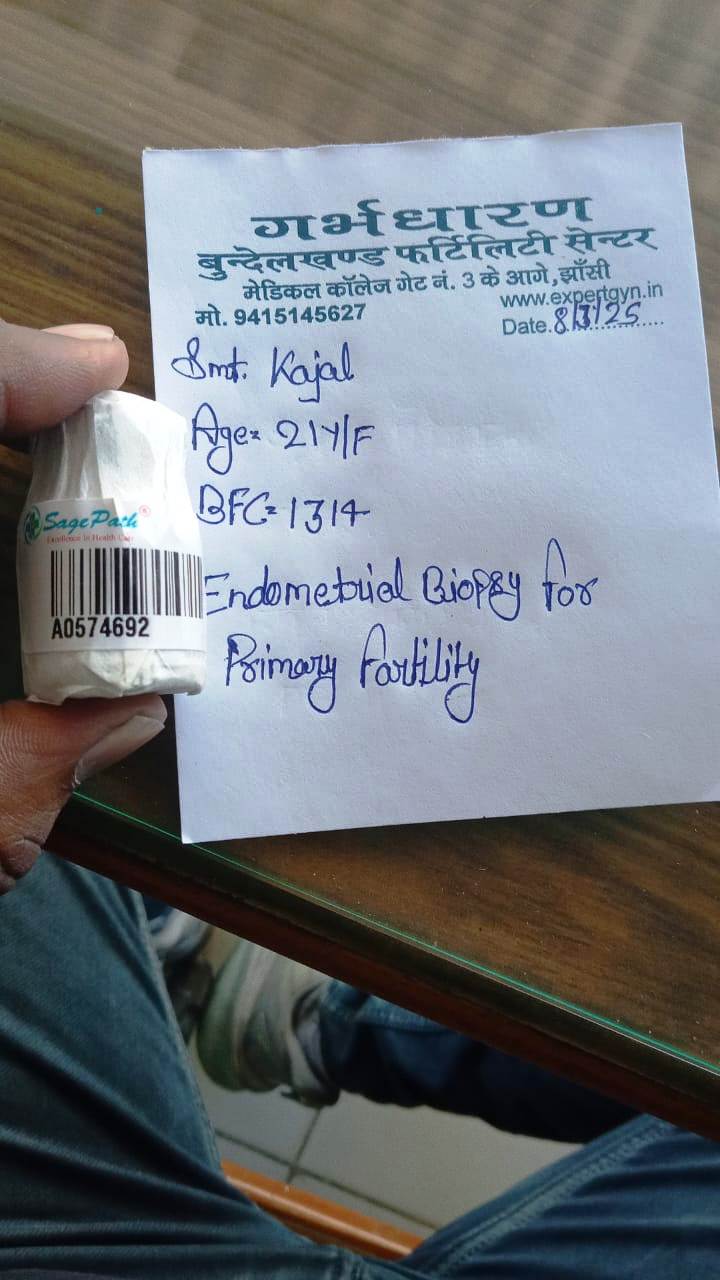 गर्भधारण
बुन्देलखण्ड फर्टिलिटी सेन्टर
मेडिकल कॉलेज गेट नं. 3 के आगे, झाँसी
मो. 9415145627
www.expertgyn.in
Date. 8/3/25
Smt. Kajal
Age= 21Y/F
BFC= 1314
Endometrial Biopsy for
Primary Fartility
SagePath®
Excellence In Health Care
A0574692